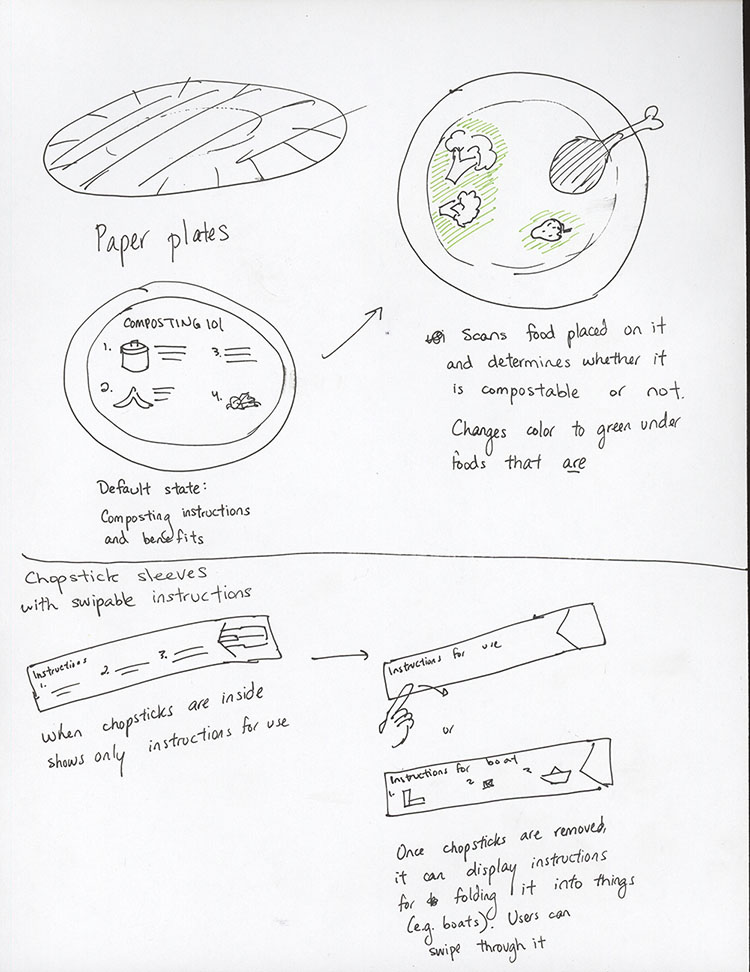 Paper plates
COMPOSTING 101
1.
3.
2.
4.
Default state:
Composting instructions
and benefits
Scans food placed on it
and determines whether it
is compostable or not.
Changes color to green under
foods that are
Chopstick sleeves
with swipable instructions
Instructions
1.
2.
3.
When chopsticks are inside
shows only instructions for use
Instructions for use
or
Instructions for boat
1.
2
3.
Once chopsticks are removed,
it can display instructions
for folding it into things
(e.g. boats). Users can
swipe through it